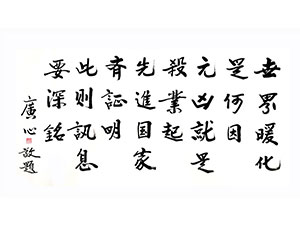 世界暖化
是何因
元凶就是
殺業起
先進国家
齊証明
此則訊息
要深銘
廣心敬題